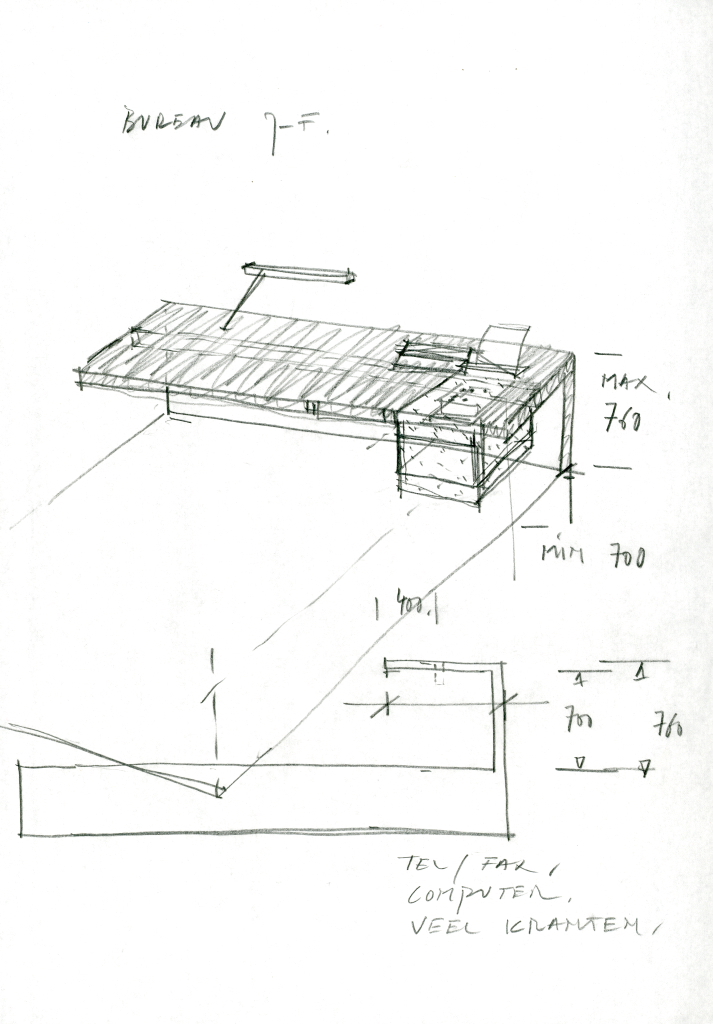 BUREAU J-F.
MAX.
760
MIN 700
400.
700
760
TEL / FAX,
COMPUTER.
VEEL KRANTEN,